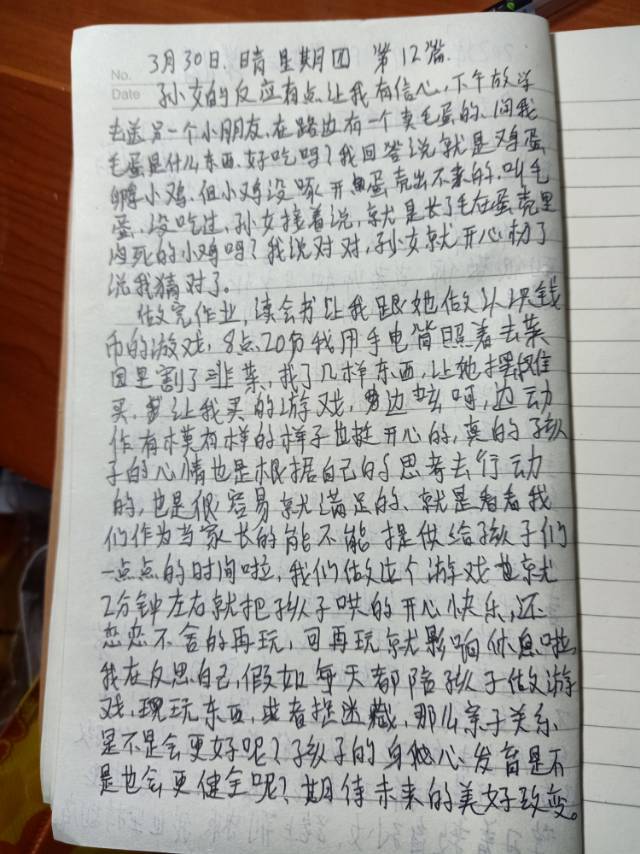 3月30日 晴 星期四 第12篇
No.
Date
孙女的反应有点让我有信心,下午放学
去送另一个小朋友,在路边有一个卖毛蛋的,问我
毛蛋是什么东西,好吃吗?我回答说就是鸡蛋
孵小鸡,但小鸡没啄开蛋壳出不来的,叫毛
蛋,没吃过,孙女接着说,就是长了毛在蛋壳里
闷死的小鸡吗?我说对对,孙女就开心极了
说我猜对了。
做完作业,读会书让我跟她做认识钱
币的游戏,8点20分我用手电筒照着去菜
园里割了韭菜,找了几样东西,让她摆摊
买,让我买的游戏,边吆呵,边动
作有模有样的样子也挺开心的,真的孩
子的心情也是根据自己的思考去行动
的,也是很容易就满足的,就是看看我
们作为当家长的能不能提供给孩子们
一点点的时间啦,我们做这个游戏也就
2分钟左右就把孩子哄的开心快乐,还
恋恋不舍的再玩,可再玩就影响休息啦,
我在反思自己,假如每天都陪孩子做游
戏,玩东西,或者捉迷藏,那么亲子关系
是不是会更好呢?孩子的身心发育是不
是也会更健全呢?期待未来的美好改变。